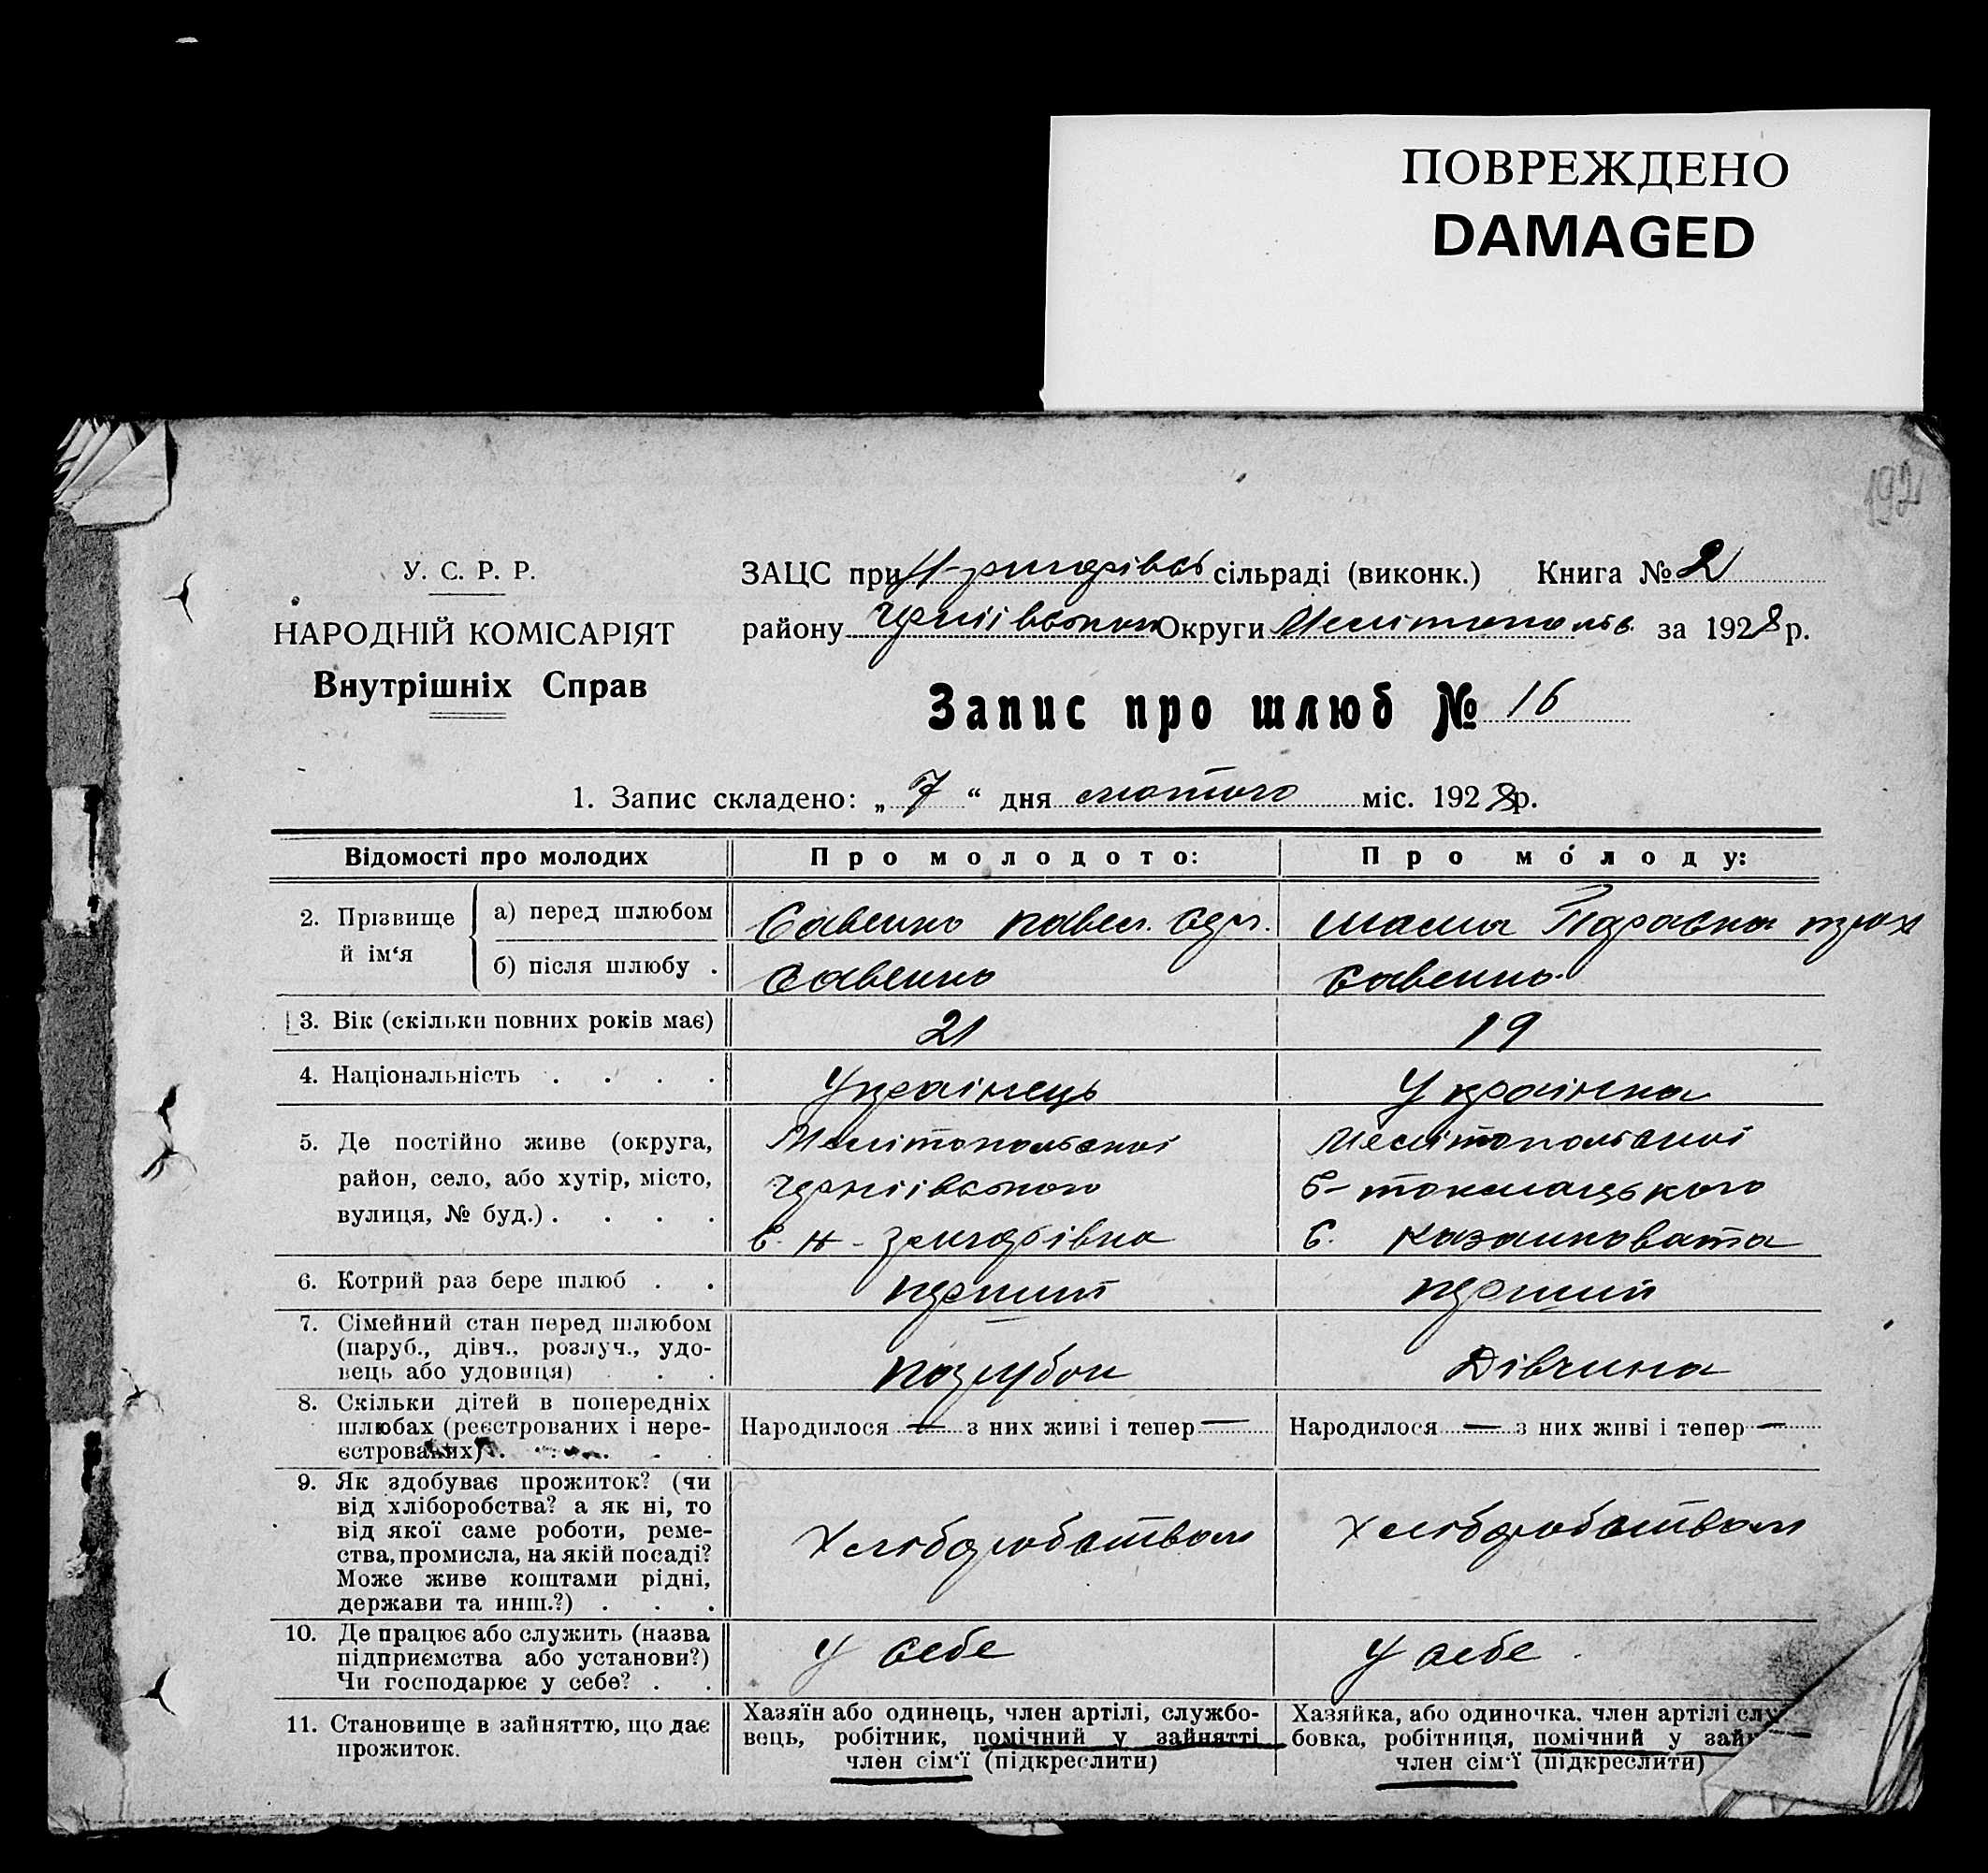 ПОВРЕЖДЕНО
DAMAGED
192
У. С. Р. Р.
НАРОДНІЙ КОМІСАРІЯТ
Внутрішніх Справ
ЗАЦС при сільраді (виконк.) Книга № 2
району Округи Мелітополь за 1928 р.
Запис про шлюб № 16
1. Запис складено: „ 7 “ дня лютого міс. 1928 р.
Відомості про молодих Про молодого: Про мо́лоду:
2. Прізвище й ім‘я
а) перед шлюбом Савенко Павел. Параска
б) після шлюбу . Савенко Савенко
3. Вік (скільки повних років має) 21 19
4. Національність . . . . Українець Українка
5. Де постійно живе (округа, Мелітопольскої Мелітопольскої
район, село, або хутір, місто, Б-токмацького
вулиця, № буд.) . . . . С. С.
6. Котрий раз бере шлюб . . перший перший
7. Сімейний стан перед шлюбом
(паруб., дівч., розлуч., удо-
вець або удовиця) . . . Дівчина
8. Скільки дітей в попередніх
шлюбах (реєстрованих і нере-
єстрованих) . . . .
Народилося — з них живі і тепер — Народилося — з них живі і тепер —
9. Як здобуває прожиток? (чи
від хліборобства? а як ні, то
від якої саме роботи, реме-
ства, промисла, на якій посаді?
Може живе коштами рідні,
держави та инш.?) . . .
Хліборобством Хліборобством
10. Де працює або служить (назва
підприємства або установи?)
Чи господарює у себе? . .
У себе У себе .
11. Становище в зайняттю, що дає
прожиток.
Хазяїн або одинець, член артілі, службо-
вець, робітник, помічний у зайнятті
член сім‘ї (підкреслити)
Хазяйка, або одиночка. член артілі слу
бовка, робітниця, помічний у зай
член сім‘ї (підкреслити)